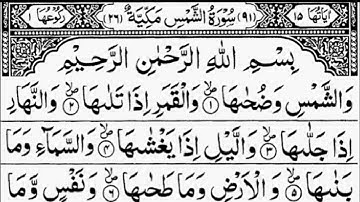 اٰیَاتُهَا ١٥ (٩١) سُوْرَةُ الشَّمْسِ مَكِّیَّةٌ (٢٦) رُكُوْعُهَا ١
بِسْمِ اللّٰهِ الرَّحْمٰنِ الرَّحِیْمِ
وَالشَّمْسِ وَضُحٰىهَا ۪ۙ‏﴿١﴾ وَالْقَمَرِ اِذَا تَلٰىهَا ۪ۙ‏﴿٢﴾ وَالنَّهَارِ
اِذَا جَلّٰىهَا ۪ۙ‏﴿٣﴾ وَالَّیْلِ اِذَا یَغْشٰىهَا ۪ۙ‏﴿٤﴾ وَالسَّمَآءِ وَمَا
بَنٰىهَا ۪ۙ‏﴿٥﴾ وَالْاَرْضِ وَمَا طَحٰىهَا ۪ۙ‏﴿٦﴾ وَنَفْسٍ وَّمَا